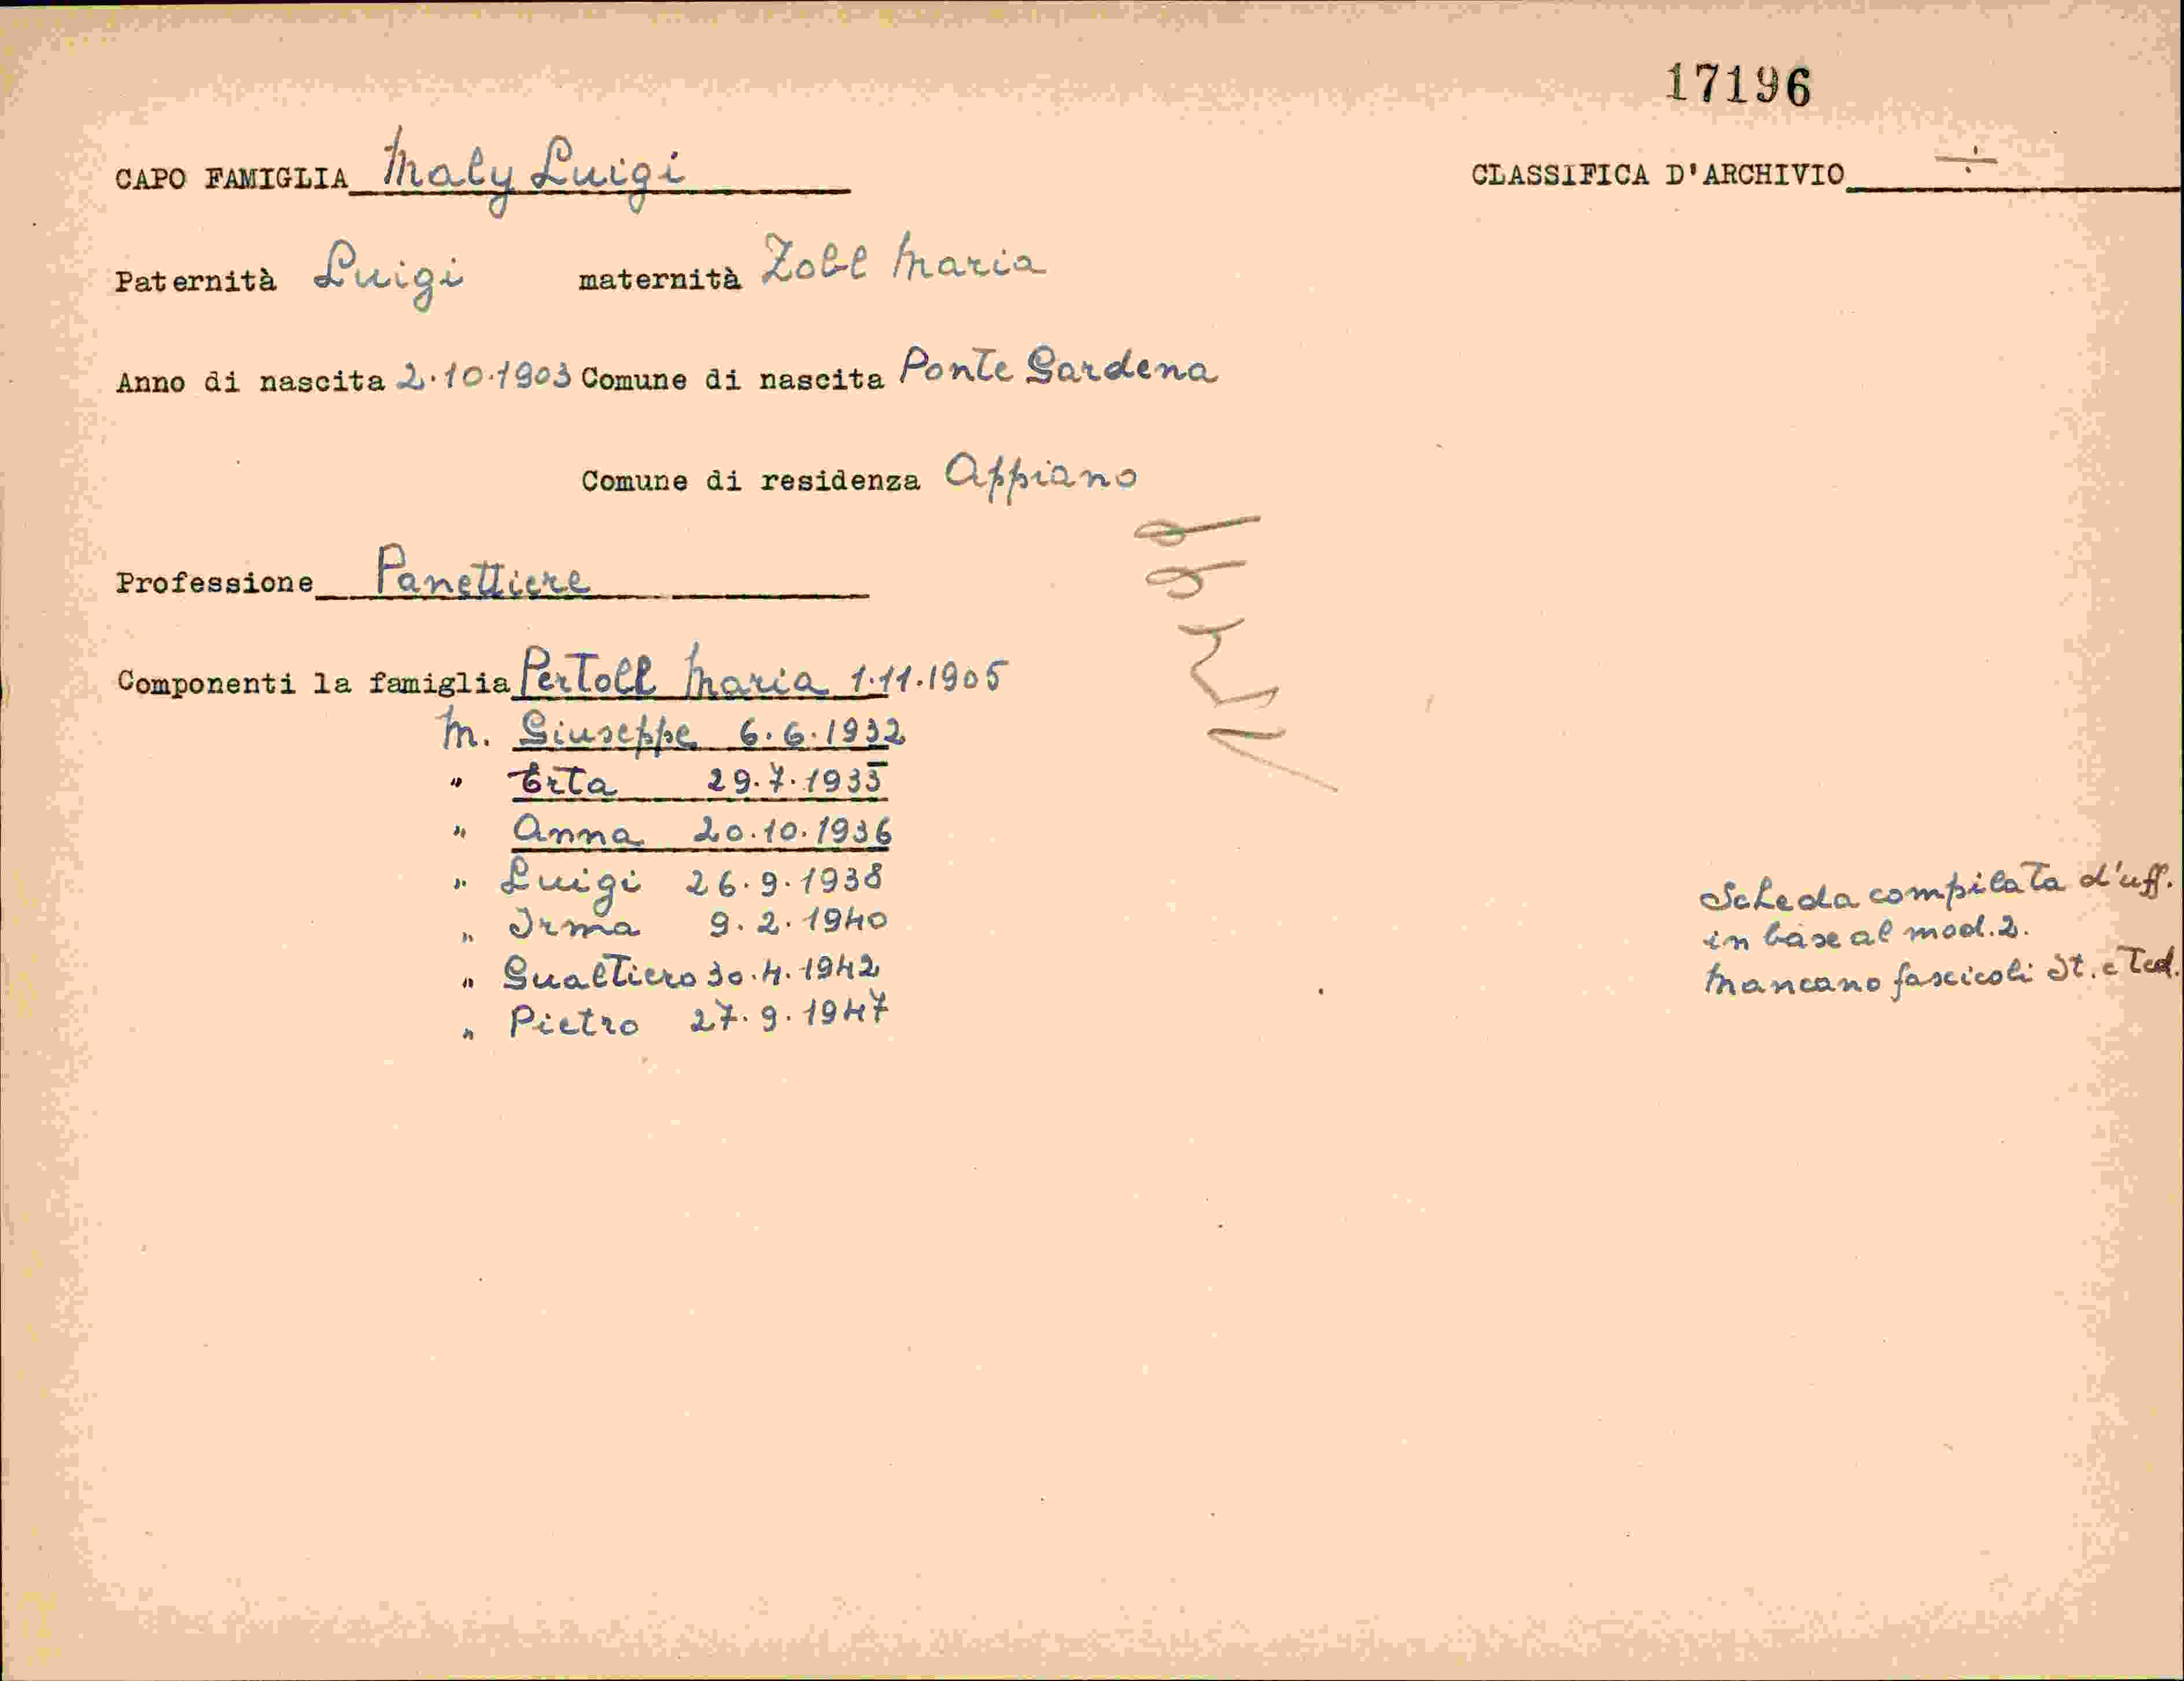 17196
CAPO FAMIGLIA Maly Luigi CLASSIFICA D'ARCHIVIO ÷
Paternità Luigi maternità Zobl Maria
Anno di nascita 2.10.1903 Comune di nascita Ponte Gardena
Comune di residenza Appiano
Professione Panettiere
Componenti la famiglia Pertoll Maria 1.11.1905
M. Giuseppe 6.6.1932
" Erta 29.7.1935
" Anna 20.10.1936
" Luigi 26.9.1938
" Irma 9.2.1940
" Gualtiero 30.4.1942
" Pietro 27.9.1947
Scheda compilata d'uff.
in base al mod. 2.
Mancano fascicoli It. e Ted.